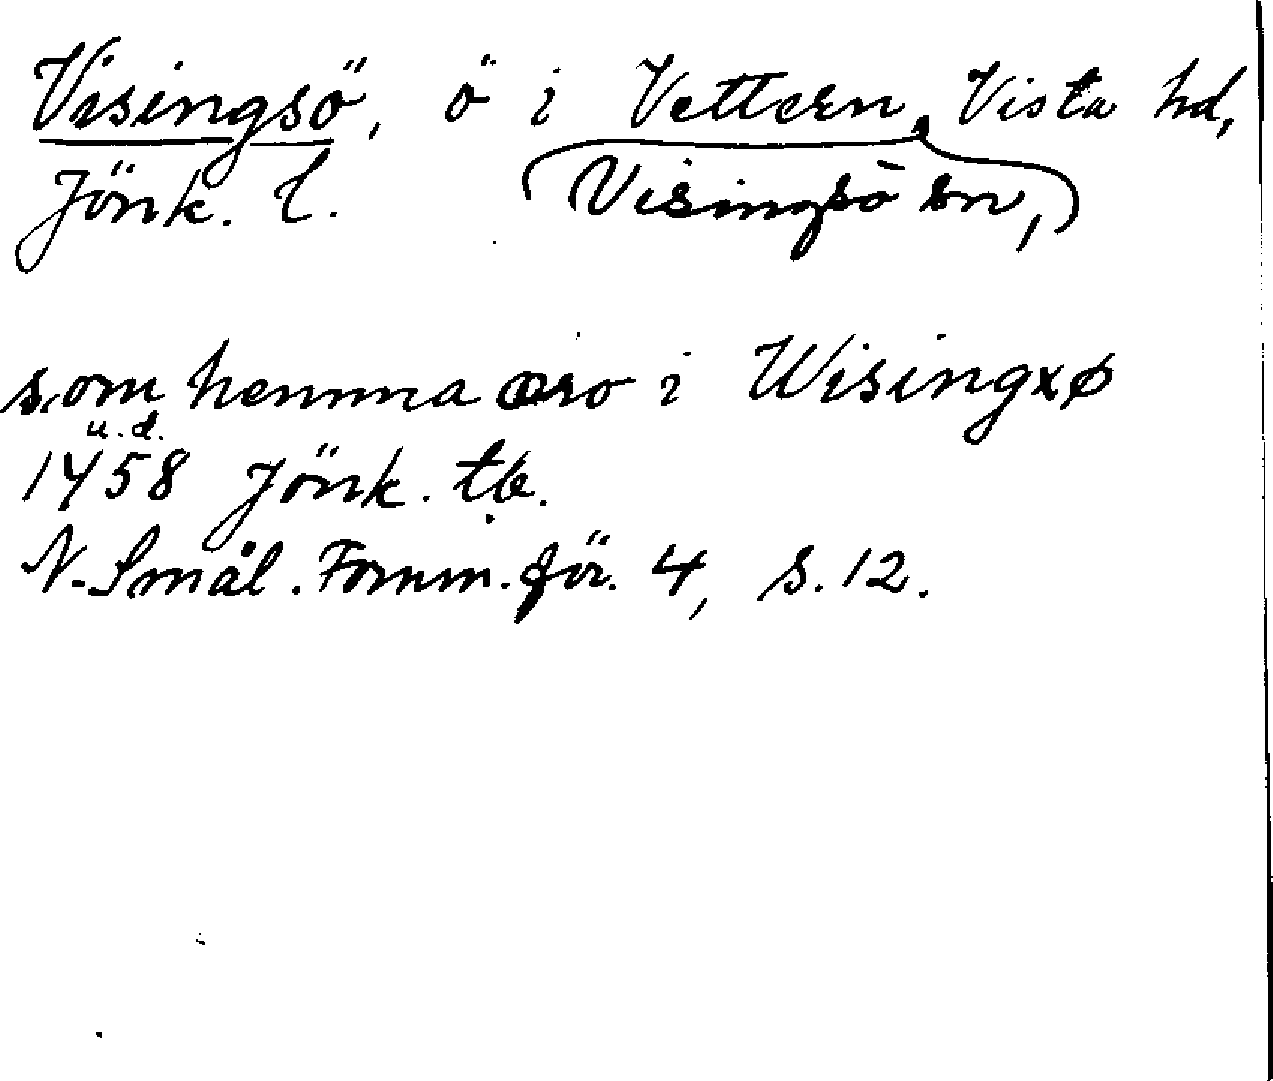 Visingsö, ö i Vettern, Vista hd,
Jönk. l. (Visingsö sn,)
som hemma æro i Wisingxø
u.d.
1458 Jönk. tb.
N. Smål. Fornm. för. 4, s. 12.